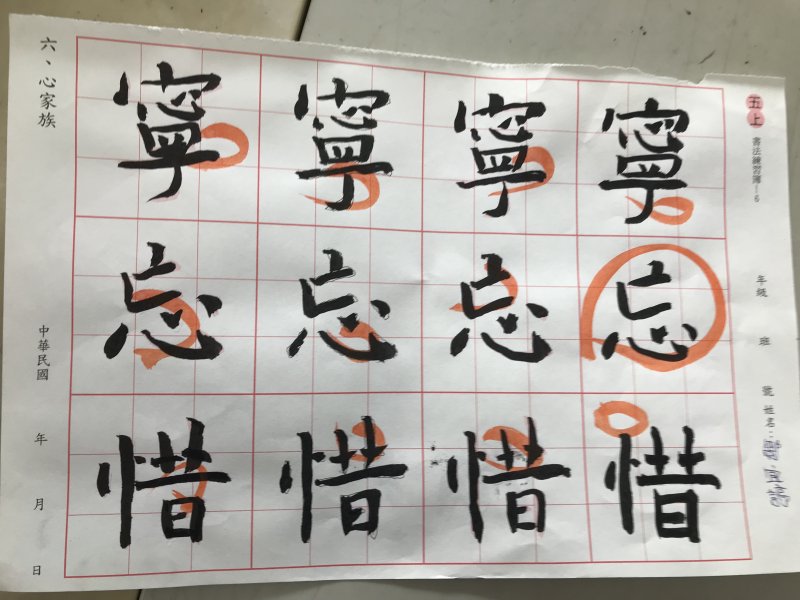 五上 書法練習簿—6 年級 班 號 姓名：
寧 忘 惜
寧 忘 惜
寧 忘 惜
寧 忘 惜
六、心家族 中華民國 年 月 日